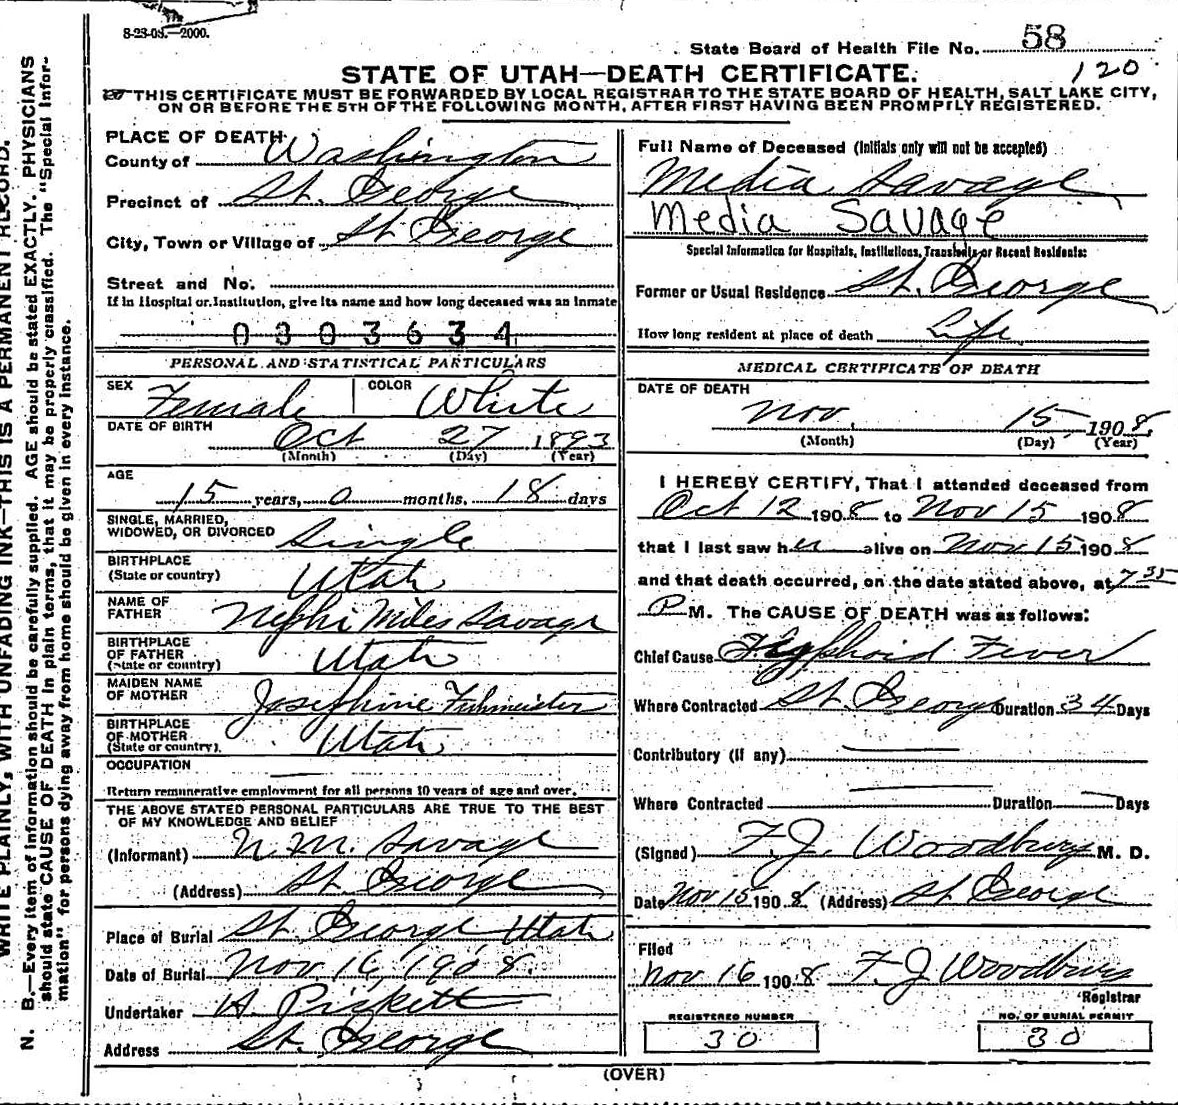 8-23-08.—2000.
State Board of Health File No. 58
120
STATE OF UTAH—DEATH CERTIFICATE.
THIS CERTIFICATE MUST BE FORWARDED BY LOCAL REGISTRAR TO THE STATE BOARD OF HEALTH, SALT LAKE CITY,
ON OR BEFORE THE 5TH OF THE FOLLOWING MONTH, AFTER FIRST HAVING BEEN PROMPTLY REGISTERED.
WRITE PLAINLY, WITH UNFADING INK—THIS IS A PERMANENT RECORD.
N. B.—Every item of information should be carefully supplied. AGE should be stated EXACTLY. PHYSICIANS
should state CAUSE OF DEATH in plain terms, that it may be properly classified. The "Special Infor-
mation" for persons dying away from home should be given in every instance.
PLACE OF DEATH
County of Washington
Precinct of St. George
City, Town or Village of St George
Street and No.
If in Hospital or Institution, give its name and how long deceased was an inmate
0303634
PERSONAL AND STATISTICAL PARTICULARS
SEX Female COLOR White
DATE OF BIRTH Oct 27 1893
(Month) (Day) (Year)
AGE
15 years, 0 months, 18 days
SINGLE, MARRIED,
WIDOWED, OR DIVORCED Single
BIRTHPLACE
(State or country) Utah
NAME OF
FATHER Nephi Miles Savage
BIRTHPLACE
OF FATHER
(State or country) Utah
MAIDEN NAME
OF MOTHER Josephine Fuhmeister
BIRTHPLACE
OF MOTHER
(State or country) Utah
OCCUPATION
Return remunerative employment for all persons 10 years of age and over.
THE ABOVE STATED PERSONAL PARTICULARS ARE TRUE TO THE BEST
OF MY KNOWLEDGE AND BELIEF
(Informant) N. M. Savage
(Address) St. George
Place of Burial St. George, Utah
Date of Burial Nov. 16, 1908.
Undertaker A. Pickett
Address St. George
Full Name of Deceased (Initials only will not be accepted)
Media Savage
Media Savage
Special Information for Hospitals, Institutions, Transients or Recent Residents:
Former or Usual Residence St. George
How long resident at place of death Life
MEDICAL CERTIFICATE OF DEATH
DATE OF DEATH
Nov. 15 1908.
(Month) (Day) (Year)
I HEREBY CERTIFY, That I attended deceased from
Oct 12 1908 to Nov 15 1908
that I last saw her alive on Nov 15 1908
and that death occurred, on the date stated above, at 7 35
P M. The CAUSE OF DEATH was as follows:
Chief Cause Typhoid Fever
Where Contracted St. George Duration 34 Days
Contributory (if any)
Where Contracted Duration Days
(Signed) F. J. Woodbury M. D.
Date Nov 15 1908 (Address) St George
Filed
Nov 16 1908 F. J Woodbury
Registrar
REGISTERED NUMBER
30
NO. OF BURIAL PERMIT
30
(OVER)